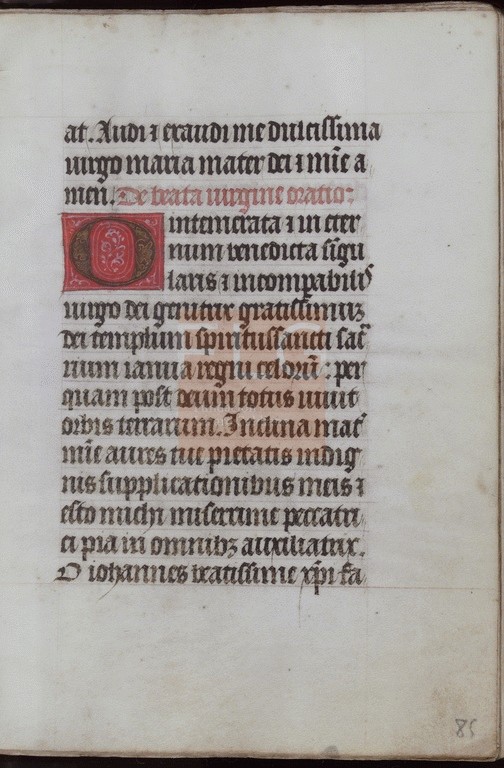 at. Audi ⁊ exaudi me dulcissima
uirgo maria mater dei ⁊ mīe a
men. De beata uirgine oratio:
O intemerata ⁊ in eter
num benedicta sīgu
laris ⁊ incomparabilis
uirgo dei genitrix gratissimaꝫ
dei templum spiritussancti sacͬ
rium ianua regni celorū: per
quam post deum totus uiuit
orbis terrarum. Inclina matͬ
mīe aures tue pietatis indig
nis supplicationibus meis ⁊
esto michi miserrime peccatri
ci pia in omnibꝫ auxiliatrix.
O iohannes beatissime xp̄i fa
85